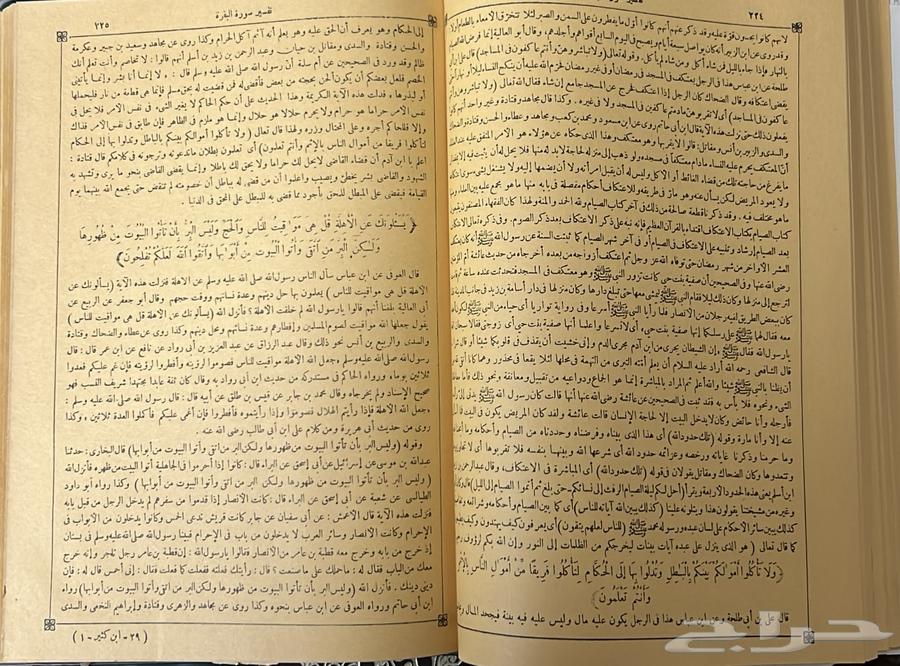 ٢٢٤
لانهم كانوا يحسون قوة عليه وقد ذكر عنهم أنهم كانوا أول ما يفطرون على السمن والصبر لئلا تتخرق الامعاء بالطعام أولا
وقد روى عن ابن الزبير أنه كان يواصل سبعة أيام ويصبح في اليوم السابع أقواهم وأجلدهم، وقال أبو العالية إنما فرض الله الصيام
بالنهار فإذا جاء بالليل فمن شاء أكل ومن شاء لم يأكل. وقوله تعالى (ولا تباشروهن وأنتم عاكفون في المساجد) قال علي بن أبي
طلحة عن ابن عباس هذا في الرجل يعتكف في المسجد في رمضان أو في غير رمضان فحرم الله عليه أن ينكح النساء ليلا أو نهارا حتى
يقضى اعتكافه وقال الضحاك كان الرجل إذا اعتكف فخرج من المسجد جامع إن شاء فقال الله تعالى (ولا تباشروهن وأنتم
عاكفون في المساجد) أى لا تقربوهن ما دمتم عاكفين في المسجد ولا في غيره. وكذا قال مجاهد وقتادة وغير واحد أنهم كانوا
يفعلون ذلك حتى نزلت هذه الآية قال ابن أبي حاتم روى عن ابن مسعود ومحمد بن كعب ومجاهد وعطاء والحسن وقتادة والضحاك
والسدى والربيع بن أنس ومقاتل: قالوا لا يقربها وهو معتكف وهذا الذى حكاه عن هؤلاء هو الامر المتفق عليه عند العلماء
أن المعتكف يحرم عليه النساء ما دام معتكفا في مسجده ولو ذهب إلى منزله لحاجة لا بد له منها فلا يحل له أن يتثبت فيه إلا بمقدار
ما يفرغ من حاجته تلك من قضاء الغائط أو الاكل وليس له أن يقبل امرأته ولا أن يضمها إليه ولا يشتغل بشيء سوى اعتكافه
ولا يعود المريض لكن يسأل عنه وهو مار في طريقه وللاعتكاف أحكام مفصلة في بابه منها ما هو مجمع عليه بين العلماء ومنها
ما هو مختلف فيه. وقد ذكرنا قطعة صالحة من ذلك في آخر كتاب الصيام ولله الحمد والمنة ولهذا كان الفقهاء المصنفون يتبعون
كتاب الصيام بكتاب الاعتكاف اقتداء بالقرآن العظيم فإنه نبه على ذكر الاعتكاف بعد ذكر الصوم. وفي ذكره تعالى الاعتكاف
بعد الصيام إرشاد وتنبيه على الاعتكاف في الصيام أو في آخر شهر الصيام كما ثبتت السنة عن رسول الله ﷺ أنه كان يعتكف
العشر الاواخر من شهر رمضان حتى توفاه الله عز وجل ثم اعتكف أزواجه من بعده أخرجاه من حديث عائشة أم المؤمنين
رضي الله عنها وفي الصحيحين أن صفية بنت حيي كانت تزور النبي ﷺ وهو معتكف في المسجد فتحدثت عنده ساعة ثم قامت
لترجع إلى منزلها وكان ذلك ليلا فقام النبي ﷺ ليمشي معها حتى تبلغ دارها وكان منزلها في دار أسامة بن زيد في جانب المدينة فلما
كان ببعض الطريق لقيه رجلان من الانصار فلما رأيا النبي ﷺ أسرعا وفي رواية تواريا أى حياء من النبي ﷺ لكون أهله
معه فقال لهما ﷺ على رسلكما إنها صفية بنت حيي، أى لا تسرعا واعلما أنها صفية بنت حيي أى زوجتي فقالا سبحان الله
يارسول الله فقال ﷺ «إن الشيطان يجري من ابن آدم مجرى الدم وإني خشيت أن يقذف في قلوبكما شيئا أو قال شرا»
قال الشافعي رحمه الله أراد عليه السلام أن يعلم أمته التبري من التهمة في محلها لئلا يقعا في محذور وهما كانا أتقى لله من
أن يظنا بالنبي ﷺ شيئا والله أعلم ثم المراد بالمباشرة إنما هو الجماع ودواعيه من تقبيل ومعانقة ونحو ذلك فأما معاطاة
الشيء ونحوه فلا بأس به فقد ثبت في الصحيحين عن عائشة رضي الله عنها أنها قالت كان رسول الله ﷺ يدني إلي رأسه
فأرجله وأنا حائض وكان لا يدخل البيت إلا لحاجة الإنسان قالت عائشة ولقد كان المريض يكون في البيت فما أسأل
عنه إلا وأنا مارة وقوله (تلك حدود الله) أى هذا الذى بيناه وفرضناه وحددناه من الصيام وأحكامه وما أبحنا فيه
وما حرمنا وذكرنا غاياته ورخصه وعزائمه حدود الله أى شرعها الله وبينها بنفسه فلا تقربوها أى لا تجاوزوها
وتتعدوها وكان الضحاك ومقاتل يقولان في قوله (تلك حدود الله) أى المباشرة في الاعتكاف، وقال عبد الرحمن بن زيد
ابن أسلم يعني هذه الحدود الاربعة ويقرأ (أحل لكم ليلة الصيام الرفث إلى نسائكم - حتى بلغ - ثم أتموا الصيام إلى الليل) قال وكان أبي
وغيره من مشيختنا يقولون هذا ويتلونه علينا (كذلك يبين الله آياته للناس) أى كما بين الصيام وأحكامه وشرائعه وتفاصيله
كذلك يبين سائر الاحكام على لسان عبده ورسوله محمد ﷺ (للناس لعلهم يتقون) أى يعرفون كيف يهتدون وكيف يطيعون
كما قال تعالى (هو الذى ينزل على عبده آيات بينات ليخرجكم من الظلمات إلى النور وإن الله بكم لرؤف رحيم)
﴿ وَلَا تَأْكُلُوا أَمْوَالَكُمْ بَيْنَكُمْ بِالْبَاطِلِ وَتُدْلُوا بِهَا إِلَى الْحُكَّامِ لِتَأْكُلُوا فَرِيقًا مِنْ أَمْوَالِ النَّاسِ بِالْإِثْمِ
وَأَنْتُمْ تَعْلَمُونَ ﴾
قال علي بن أبي طلحة وعن ابن عباس هذا في الرجل يكون عليه مال وليس عليه فيه بينة فيجحد المال
تفسير سورة البقرة
٢٢٥
إلى الحكام وهو يعرف أن الحق عليه وهو يعلم أنه آثم آكل الحرام وكذا روى عن مجاهد وسعيد بن جبير وعكرمة
والحسن وقتادة والسدى ومقاتل بن حيان وعبد الرحمن بن زيد بن أسلم أنهم قالوا: لا تخاصم وأنت تعلم أنك
ظالم وقد ورد في الصحيحين عن أم سلمة أن رسول الله صلى الله عليه وسلم قال: «ألا إنما أنا بشر وإنما يأتيني
الخصم فلعل بعضكم أن يكون ألحن بحجته من بعض فأقضي له فمن قضيت له بحق مسلم فإنما هي قطعة من نار فليحملها
أو ليذرها» فدلت هذه الآية الكريمة وهذا الحديث على أن حكم الحاكم لا يغير الشيء في نفس الامر فلا يحل في
نفس الامر حراما هو حرام ولا يحرم حلالا هو حلال وإنما هو ملزم في الظاهر فإن طابق في نفس الامر فذاك
وإلا فللحاكم أجره وعلى المحتال وزره ولهذا قال تعالى (ولا تأكلوا أموالكم بينكم بالباطل وتدلوا بها إلى الحكام
لتأكلوا فريقا من أموال الناس بالإثم وأنتم تعلمون) أى تعلمون بطلان ما تدعونه وتروجونه في كلامكم قال قتادة:
اعلم يا ابن آدم أن قضاء القاضي لا يحل لك حراما ولا يحق لك باطلا وإنما يقضي القاضي بنحو ما يرى وتشهد به
الشهود والقاضي بشر يخطئ ويصيب واعلموا أن من قضي له بباطل أن خصومته لم تنقض حتى يجمع الله بينهما يوم
القيامة فيقضي على المبطل للمحق بأجود مما قضي به للمبطل على المحق في الدنيا.
﴿ يَسْئَلُونَكَ عَنِ الْأَهِلَّةِ قُلْ هِيَ مَوَاقِيتُ لِلنَّاسِ وَالْحَجِّ وَلَيْسَ الْبِرُّ بِأَنْ تَأْتُوا الْبُيُوتَ مِنْ ظُهُورِهَا
وَلَكِنَّ الْبِرَّ مَنِ اتَّقَى وَأْتُوا الْبُيُوتَ مِنْ أَبْوَابِهَا وَاتَّقُوا اللَّهَ لَعَلَّكُمْ تُفْلِحُونَ ﴾
قال العوفي عن ابن عباس سأل الناس رسول الله صلى الله عليه وسلم عن الاهلة فنزلت هذه الآية (يسألونك عن
الاهلة قل هي مواقيت للناس) يعلمون بها حل دينهم وعدة نسائهم ووقت حجهم وقال أبو جعفر عن الربيع عن
أبي العالية بلغنا أنهم قالوا يارسول الله لم خلقت الاهلة؟ فأنزل الله (يسألونك عن الاهلة قل هي مواقيت للناس)
يقول جعلها الله مواقيت لصوم المسلمين وإفطارهم وعدة نسائهم ومحل دينهم وكذا روى عن عطاء والضحاك وقتادة
والسدى والربيع بن أنس نحو ذلك وقال عبد الرزاق عن عبد العزيز بن أبي رواد عن نافع عن ابن عمر قال: قال
رسول الله صلى الله عليه وسلم «جعل الله الاهلة مواقيت للناس فصوموا لرؤيته وأفطروا لرؤيته فإن غم عليكم فعدوا
ثلاثين يوما» ورواه الحاكم في مستدركه من حديث ابن أبي رواد به وقال كان ثقة عابدا مجتهدا شريف النسب فهو
صحيح الإسناد ولم يخرجاه وقال محمد بن جابر عن قيس بن طلق عن أبيه قال: قال رسول الله صلى الله عليه وسلم:
«جعل الله الاهلة فإذا رأيتم الهلال فصوموا وإذا رأيتموه فأفطروا فإن أغمي عليكم فأكملوا العدة ثلاثين» وكذا
روى من حديث أبي هريرة ومن كلام علي بن أبي طالب رضي الله عنه.
وقوله (وليس البر بأن تأتوا البيوت من ظهورها ولكن البر من اتقى وأتوا البيوت من أبوابها) قال البخارى: حدثنا
عبد الله بن موسى عن إسرائيل عن أبي إسحق عن البراء قال: كانوا إذا أحرموا في الجاهلية أتوا البيت من ظهره فأنزل الله
(وليس البر بأن تأتوا البيوت من ظهورها ولكن البر من اتقى وأتوا البيوت من أبوابها) وكذا رواه أبو داود
الطيالسي عن شعبة عن أبي إسحق عن البراء قال: كانت الانصار إذا قدموا من سفرهم لم يدخل الرجل من قبل بابه
فنزلت هذه الآية قال الاعمش: عن أبي سفيان عن جابر كانت قريش تدعى الحمس وكانوا يدخلون من الابواب في
الإحرام وكانت الانصار وسائر العرب لا يدخلون من باب في الإحرام فبينا رسول الله صلى الله عليه وسلم في بستان
إذ خرج من بابه وخرج معه قطبة بن عامر من الانصار فقالوا يارسول الله: إن قطبة بن عامر رجل فاجر وإنه خرج
معك من الباب فقال له: ما حملك على ما صنعت؟ قال: رأيتك فعلته ففعلت كما فعلت فقال: إني أحمس قال له: فإن
ديني دينك. فأنزل الله (وليس البر بأن تأتوا البيوت من ظهورها ولكن البر من اتقى وأتوا البيوت من أبوابها) رواه
ابن أبي حاتم ورواه العوفي عن ابن عباس بنحوه وكذا روى عن مجاهد والزهرى وقتادة وإبراهيم النخعي والسدى
( ٢٩ - ابن كثير - ١ )
حراج